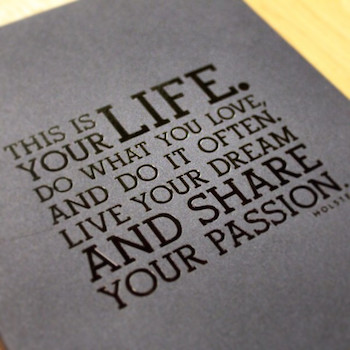 THIS IS
YOUR LIFE.
DO WHAT YOU LOVE,
AND DO IT OFTEN.
LIVE YOUR DREAM
AND SHARE
YOUR PASSION.